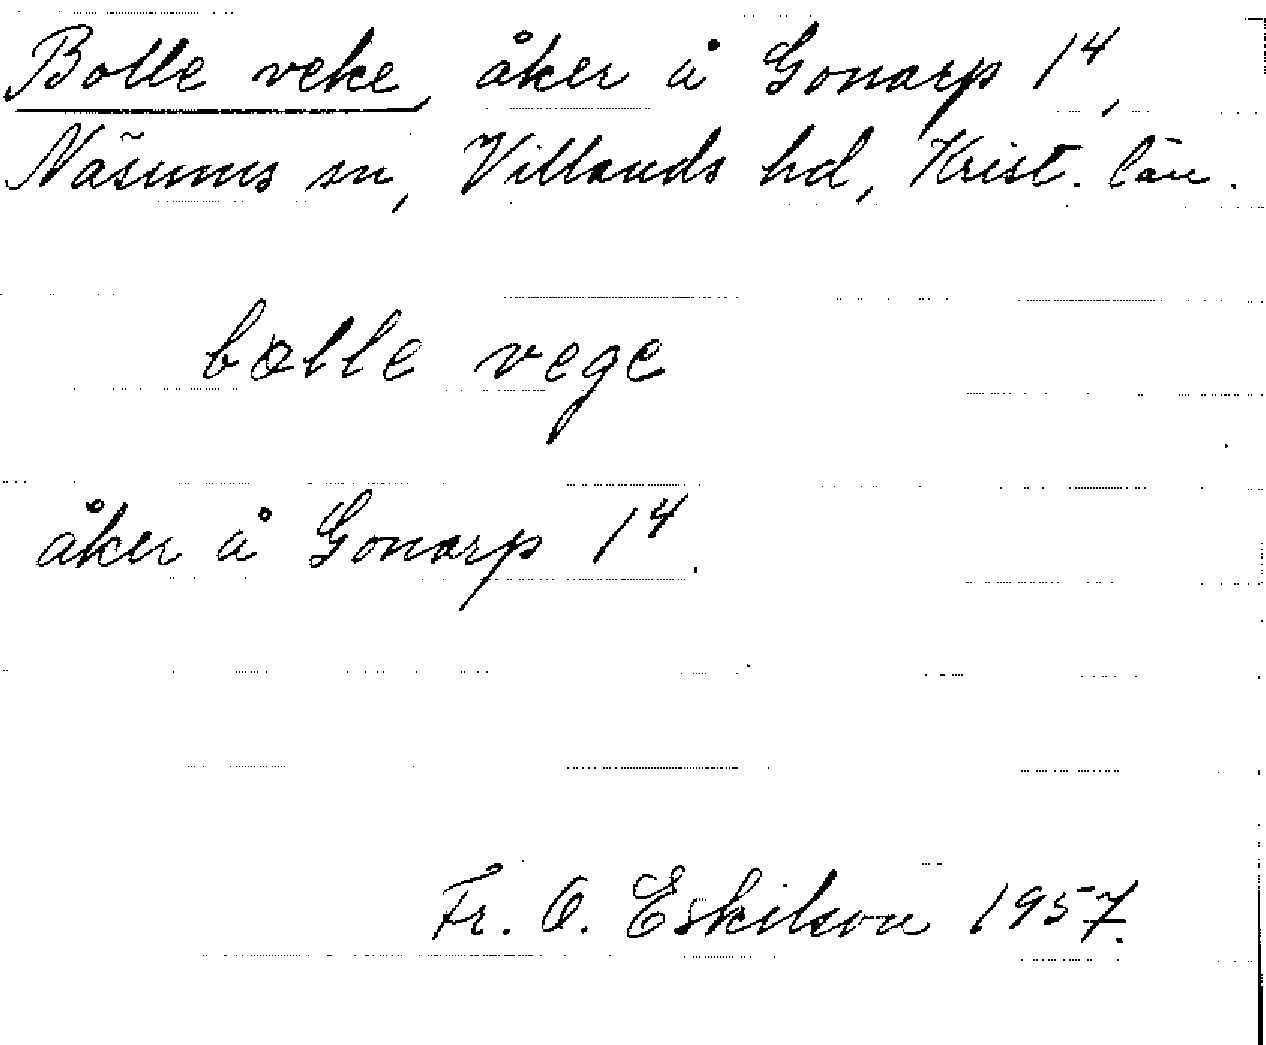 Bolle veke, åker å Gonarp 1⁴,
Näsums sn, Villands hd, Krist. län.
bolle vege
åker å Gonarp 1⁴.
Fr. O. Eskilson 1957.